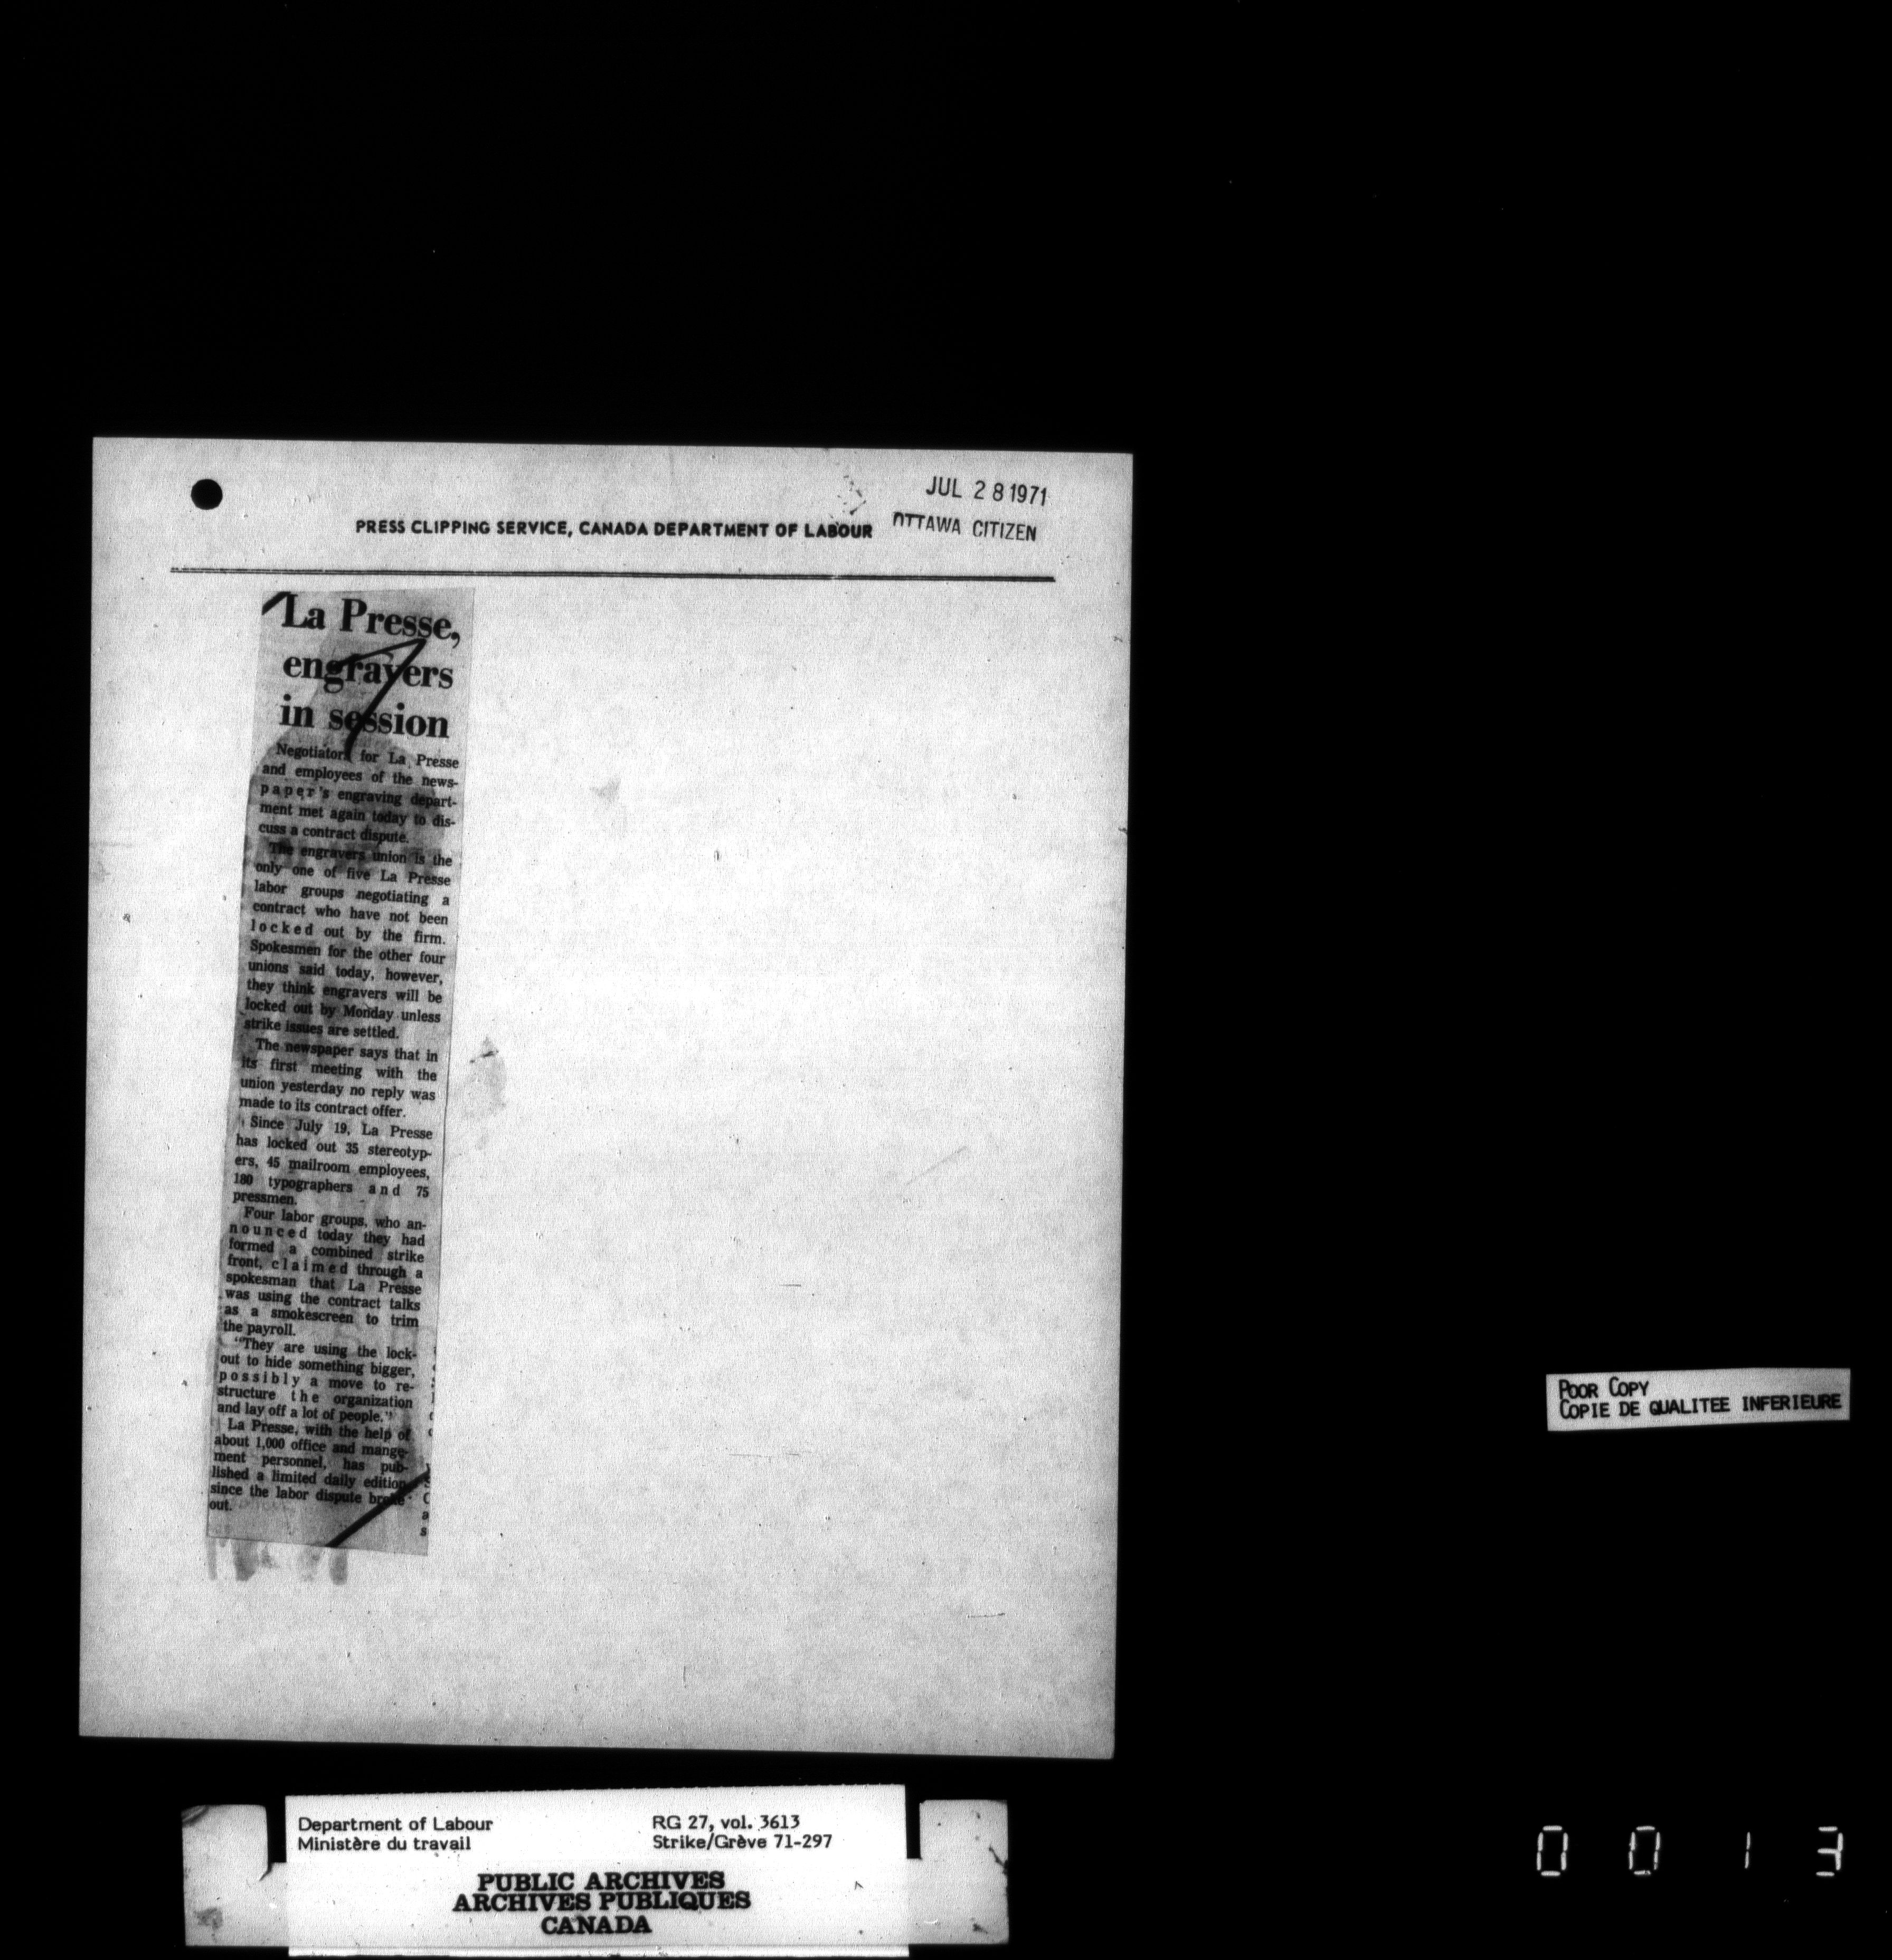 JUL 28 1971
PRESS CLIPPING SERVICE, CANADA DEPARTMENT OF LABOUR
OTTAWA CITIZEN
La Presse,
engravers
in session
Negotiators for La Presse
and employees of the news-
paper's engraving depart-
ment met again today to dis-
cuss a contract dispute.
The engravers union is the
only one of five La Presse
labor groups negotiating a
contract who have not been
locked out by the firm.
Spokesmen for the other four
unions said today, however,
they think engravers will be
locked out by Monday unless
strike issues are settled.
The newspaper says that in
its first meeting with the
union yesterday no reply was
made to its contract offer.
Since July 19, La Presse
has locked out 35 stereotyp-
ers, 45 mailroom employees,
180 typographers and 75
pressmen.
Four labor groups, who an-
nounced today they had
formed a combined strike
front, claimed through a
spokesman that La Presse
was using the contract talks
as a smokescreen to trim
the payroll.
"They are using the lock-
out to hide something bigger,
possibly a move to re-
structure the organization
and lay off a lot of people."
La Presse, with the help of
about 1,000 office and mange-
ment personnel, has pub-
lished a limited daily edition
since the labor dispute broke
out.
POOR COPY
COPIE DE QUALITEE INFERIEURE
Department of Labour RG 27, vol. 3613
Ministère du travail Strike/Grève 71-297
PUBLIC ARCHIVES
ARCHIVES PUBLIQUES
CANADA
0013